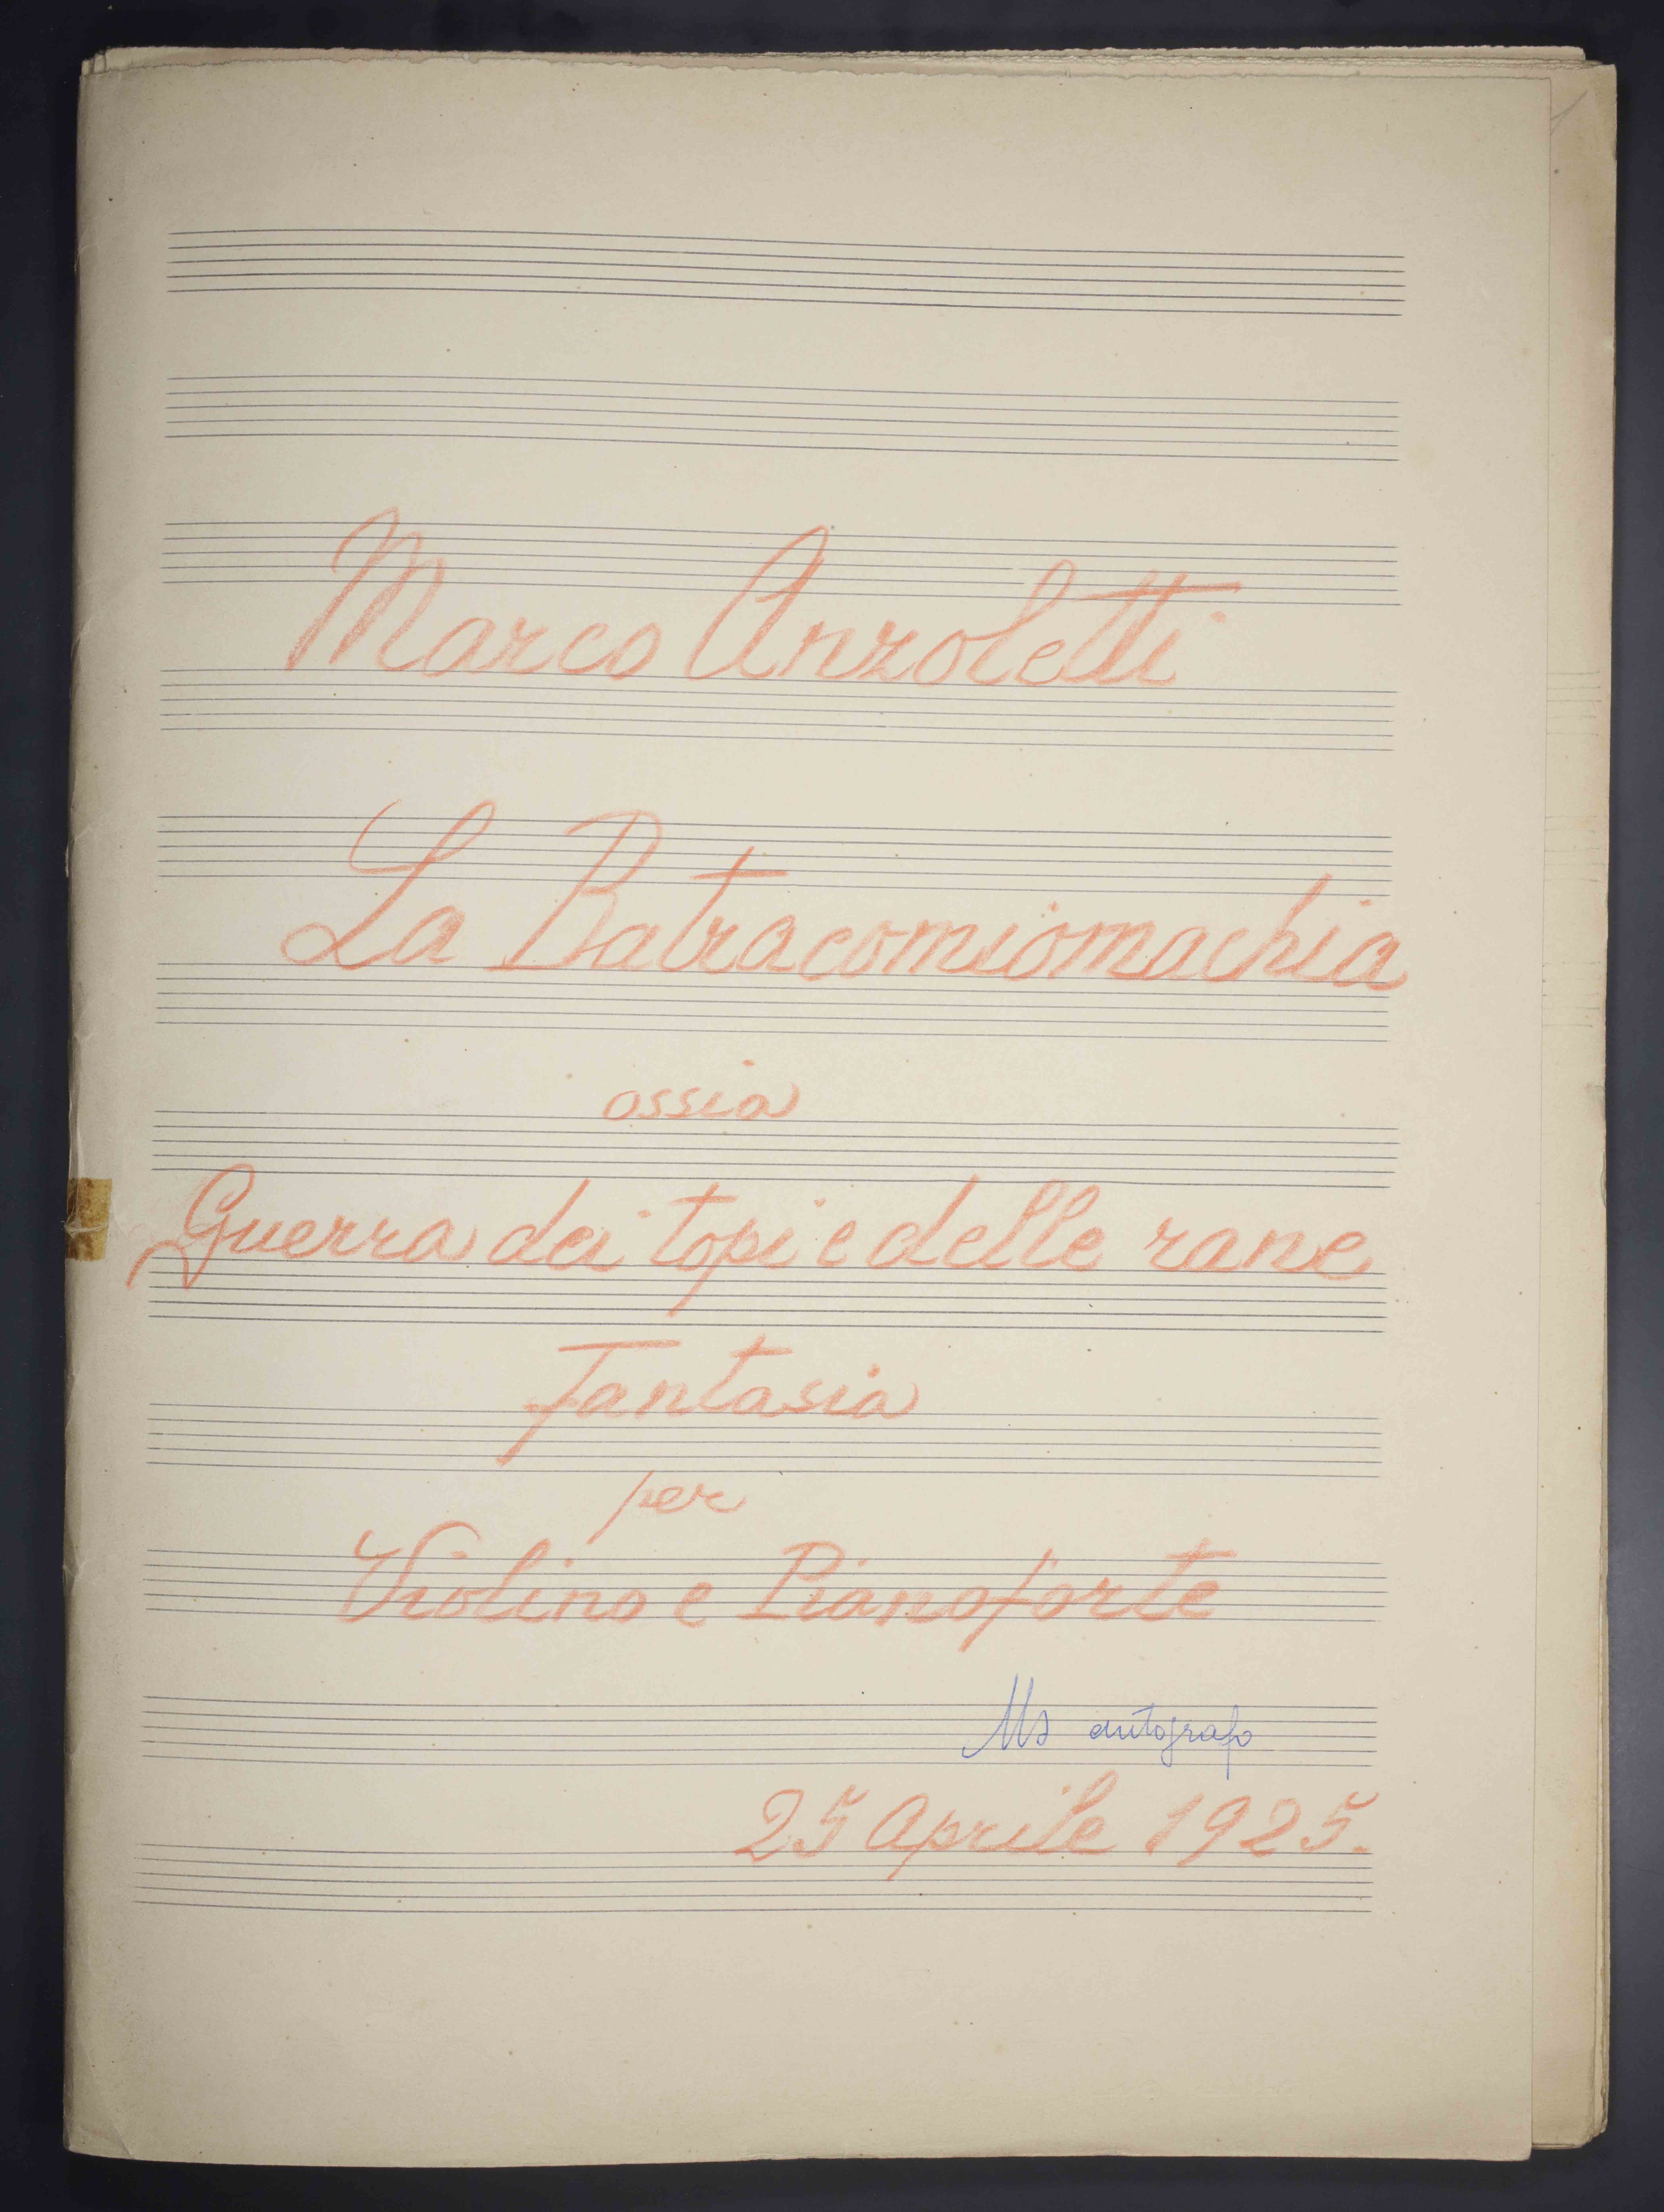 Marco Anzoletti
La Batracomiomachia
ossia
Guerra dei topi e delle rane
Fantasia
per
Violino e Pianoforte
Ms autografo
25 Aprile 1925.